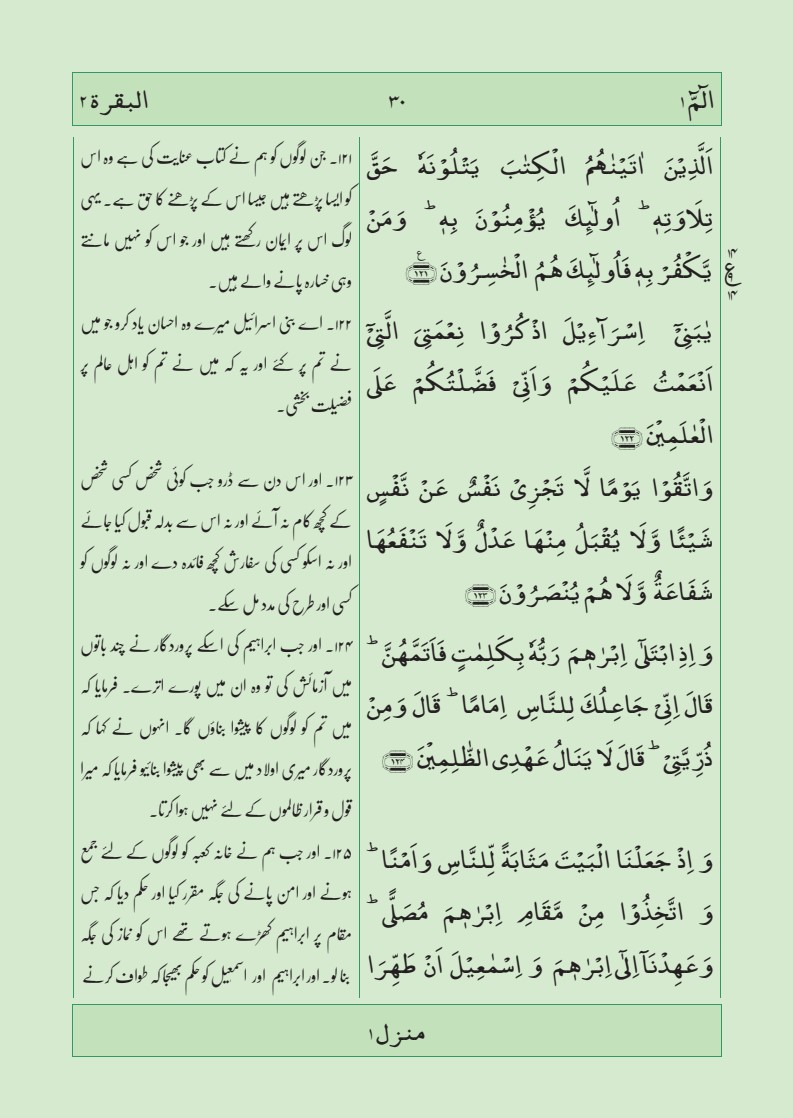 الٓمّٓ ۱
۳۰
البقرة ۲
اَلَّذِيۡنَ اٰتَيۡنٰهُمُ الۡكِتٰبَ يَتۡلُوۡنَهٗ حَقَّ
تِلَاوَتِهٖ ؕ اُولٰٓئِكَ يُؤۡمِنُوۡنَ بِهٖ ؕ وَمَنۡ
يَّكۡفُرۡ بِهٖ فَاُولٰٓئِكَ هُمُ الۡخٰسِرُوۡنَ ﴿۱۲۱﴾ ع
۱۴
ع
۱۴
يٰبَنِىۡٓ اِسۡرَآءِيۡلَ اذۡكُرُوۡا نِعۡمَتِىَ الَّتِىۡٓ
اَنۡعَمۡتُ عَلَيۡكُمۡ وَاَنِّىۡ فَضَّلۡتُكُمۡ عَلَى
الۡعٰلَمِيۡنَ ﴿۱۲۲﴾
وَاتَّقُوۡا يَوۡمًا لَّا تَجۡزِىۡ نَفۡسٌ عَنۡ نَّفۡسٍ
شَيۡئًا وَّلَا يُقۡبَلُ مِنۡهَا عَدۡلٌ وَّلَا تَنۡفَعُهَا
شَفَاعَةٌ وَّلَا هُمۡ يُنۡصَرُوۡنَ ﴿۱۲۳﴾
وَ اِذِ ابۡتَلٰٓى اِبۡرٰهٖمَ رَبُّهٗ بِكَلِمٰتٍ فَاَتَمَّهُنَّ ؕ
قَالَ اِنِّىۡ جَاعِلُكَ لِلنَّاسِ اِمَامًا ؕ قَالَ وَمِنۡ
ذُرِّيَّتِىۡ ؕ قَالَ لَا يَنَالُ عَهۡدِى الظّٰلِمِيۡنَ ﴿۱۲۴﴾
وَ اِذۡ جَعَلۡنَا الۡبَيۡتَ مَثَابَةً لِّلنَّاسِ وَاَمۡنًا ؕ
وَ اتَّخِذُوۡا مِنۡ مَّقَامِ اِبۡرٰهٖمَ مُصَلًّى ؕ
وَعَهِدۡنَآ اِلٰٓى اِبۡرٰهٖمَ وَ اِسۡمٰعِيۡلَ اَنۡ طَهِّرَا
۱۲۱۔ جن لوگوں کو ہم نے کتاب عنایت کی ہے وہ اس
کو ایسا پڑھتے ہیں جیسا اس کے پڑھنے کا حق ہے۔ یہی
لوگ اس پر ایمان رکھتے ہیں اور جو اس کو نہیں مانتے
وہی خسارہ پانے والے ہیں۔
۱۲۲۔ اے بنی اسرائیل میرے وہ احسان یاد کرو جو میں
نے تم پر کئے اور یہ کہ میں نے تم کو اہل عالم پر
فضیلت بخشی۔
۱۲۳۔ اور اس دن سے ڈرو جب کوئی شخص کسی شخص
کے کچھ کام نہ آئے اور نہ اس سے بدلہ قبول کیا جائے
اور نہ اسکو کسی کی سفارش کچھ فائدہ دے اور نہ لوگوں کو
کسی اور طرح کی مدد مل سکے۔
۱۲۴۔ اور جب ابراہیم کی اسکے پروردگار نے چند باتوں
میں آزمائش کی تو وہ ان میں پورے اترے۔ فرمایا کہ
میں تم کو لوگوں کا پیشوا بناؤں گا۔ انہوں نے کہا کہ
پروردگار میری اولاد میں سے بھی پیشوا بنائیو فرمایا کہ میرا
قول و قرار ظالموں کے لئے نہیں ہوا کرتا۔
۱۲۵۔ اور جب ہم نے خانہ کعبہ کو لوگوں کے لئے جمع
ہونے اور امن پانے کی جگہ مقرر کیا اور حکم دیا کہ جس
مقام پر ابراہیم کھڑے ہوتے تھے اس کو نماز کی جگہ
بنا لو۔ اور ابراہیم اور اسمعیل کو حکم بھیجا کہ طواف کرنے
منزل ۱